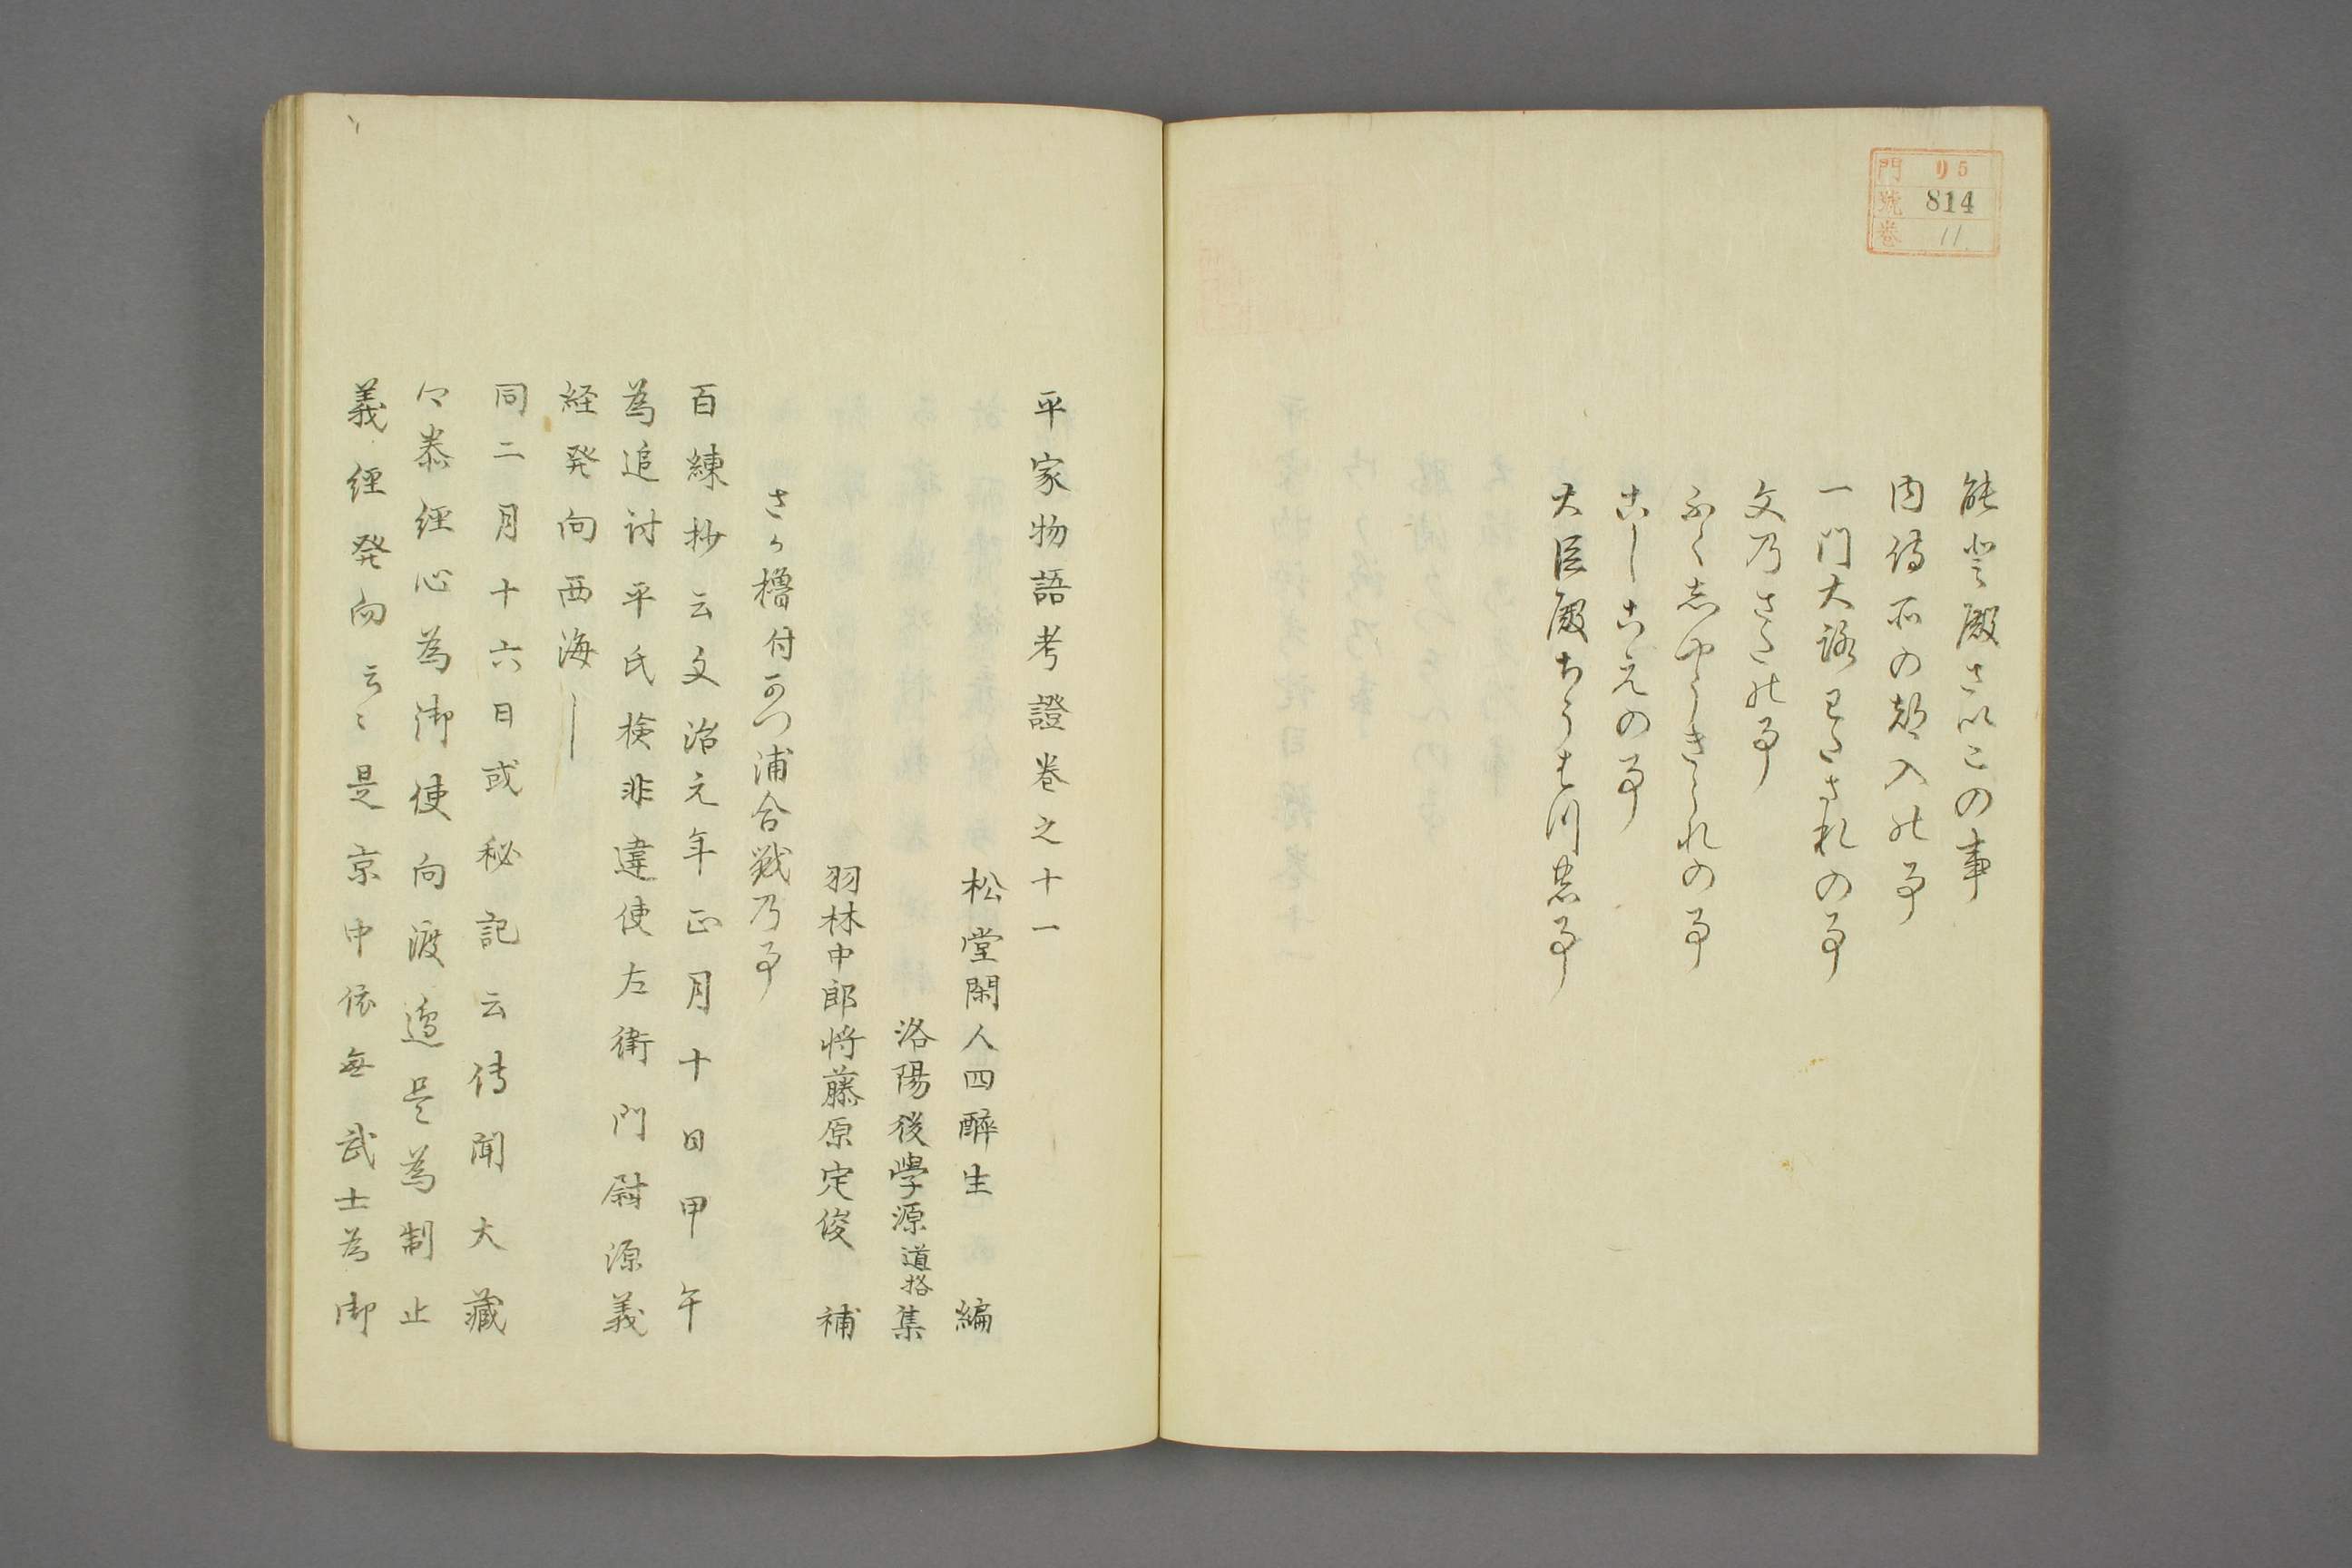 門 リ5
號 814
巻 11
能登殿さいこの事
内侍所の都入の事
一門大路わたされの事
文乃さたの事
ふくしやうきられの事
こしこえの事
大臣殿ちうせ川の事
平家物語考證巻之十一
松堂閑人四醉生 編
洛陽後學源道格集
羽林中郎将藤原定俊 補
さか櫓付かつ浦合戦乃事
百練抄云文治元年正月十日甲午
為追討平氏検非違使左衛門尉源義
経発向西海
同二月十六日或秘記云傳聞大藏
卿泰經心為御使向渡邉是為制止
義經発向云〻是京中依無武士為御